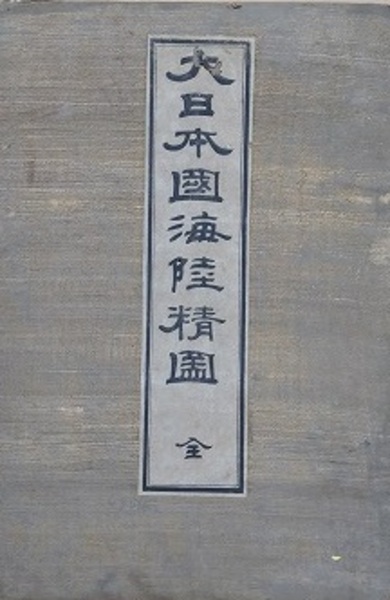 大日本國海陸精圖 全